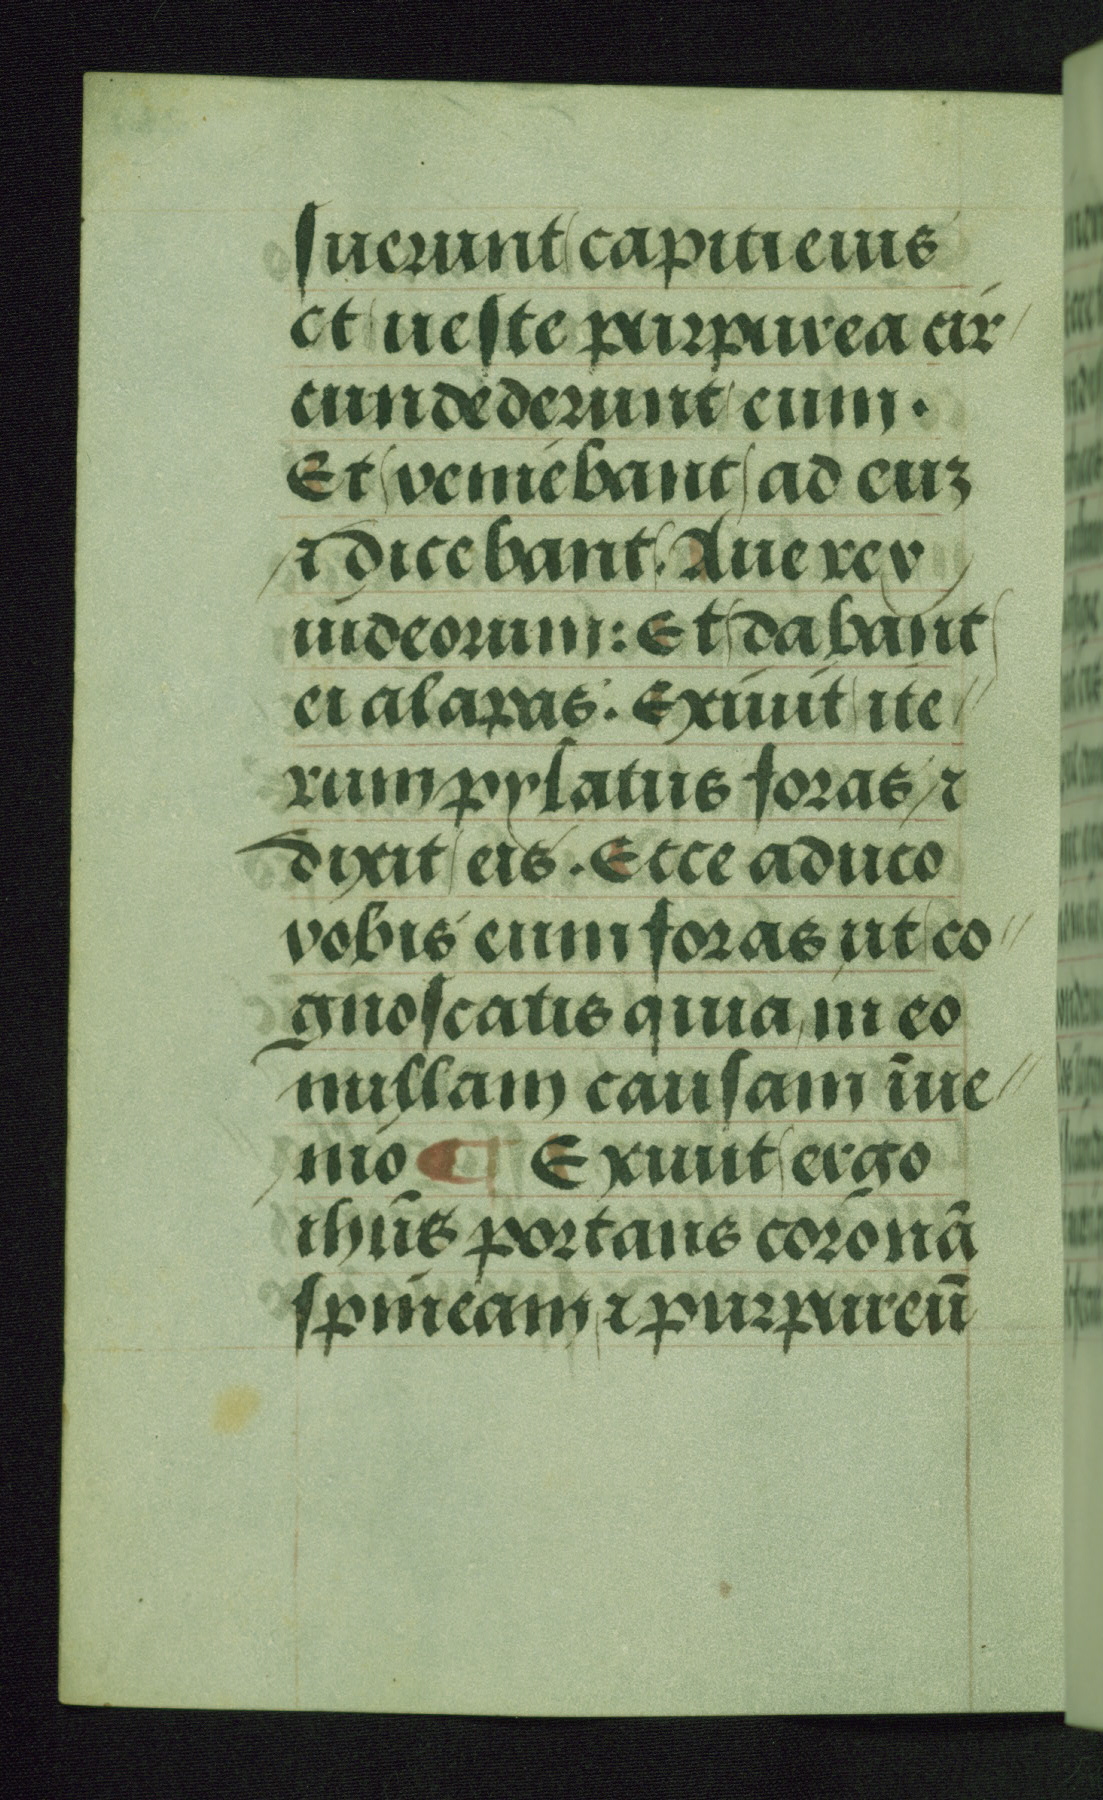 suerunt capiti eius
et ueste purpurea cir/
cundederunt eum.
Et veniebant ad euz
⁊ dicebant. Aue rex
iudeorum: Et dabant
ei alapas. Exiuit ite//
rum pylatus foras ⁊
dixit eis. Ecce aduco
vobis eum foras ut co//
gnoscatis quia in eo
nullam causam īue//
nio ¶ Exiuit ergo
ihūs portans coronā
spineam ⁊ purpureū